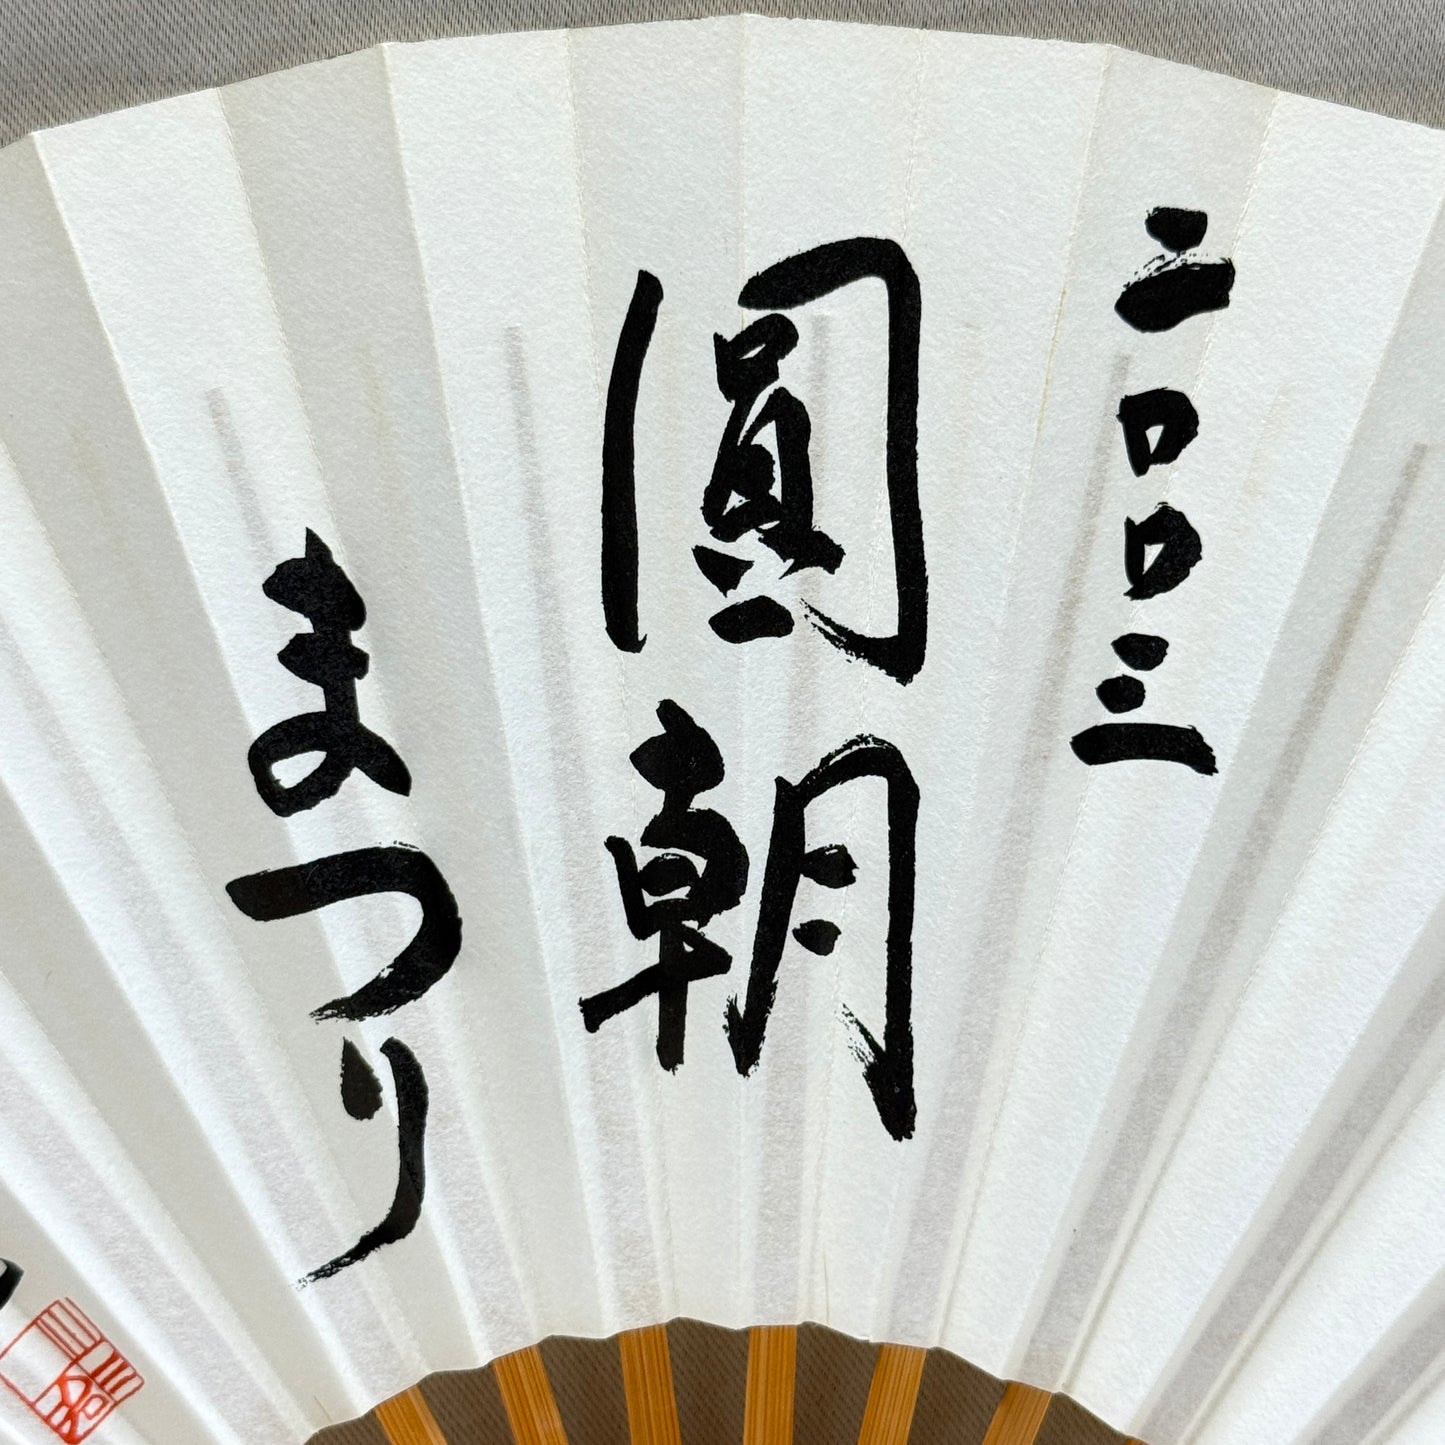 二〇〇三
圓朝
まつり